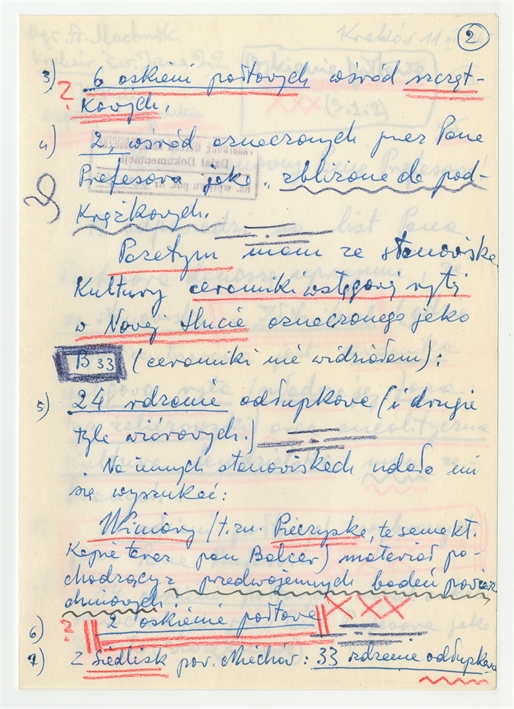 2
3) 6 oskieni połtovych wśród szcząt-
kovych.
4) 2, wśród oznaczonych przez Pana
Profesora jako, zbliżone do pod-
krążkovych.
Pozatym mam ze stanoviska
Kultury ceramiki wstęgovej rytej
w Novej Hucie oznaczonego jako
B 33 (ceramiki nie widziałem):
5) 24 rdzenie odłupkove (i drugie
tyle wiórovych.)
Na innych stanoviskach udało mi
się wyszukać:
Winiary (t.zn. Pieczyska, te same kt.
Kopie teraz pan Balcer) materiał po-
chodzący z przedwojennych badań powierz
chniovych:
6) ? 2 oskienie połtove XXX
7) Z Siedlisk pov. Miechów: 33 rdzenie odłupkove